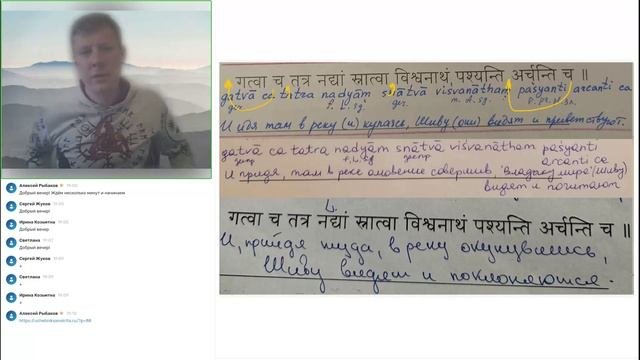 Алексей Рыбаков 19:05
Добрый вечер! Ждём несколько минут и начинаем
Сергей Жуков 19:09
Добрый вечер
Ирина Козыятко
Добрый вечер
Светлана 19:07
Добрый вечер
Сергей Жуков 19:09
+
Светлана 19:09
+
Ирина Козыятко 19:09
+
Алексей Рыбаков 19:12
गत्वा च तत्र नद्यां स्नात्वा विश्वनाथं पश्यन्ति अर्चन्ति च ॥
gatvā ca tatra nadyām snātvā visvanātham paśyanti arcanti ca
И идя там в реку (и) купаясь, Шиву (они) видят и приветствуют.
gatvā ca tatra nadyām snātvā visvanātham paśyanti
arcanti ca
И придя, там в реке омовение совершив "Владыку мира" (Шиву)
видят и почитают
गत्वा च तत्र नद्यां स्नात्वा विश्वनाथं पश्यन्ति अर्चन्ति च ॥
И, придя туда, в реку окунувшись,
Шиву видят и поклоняются.